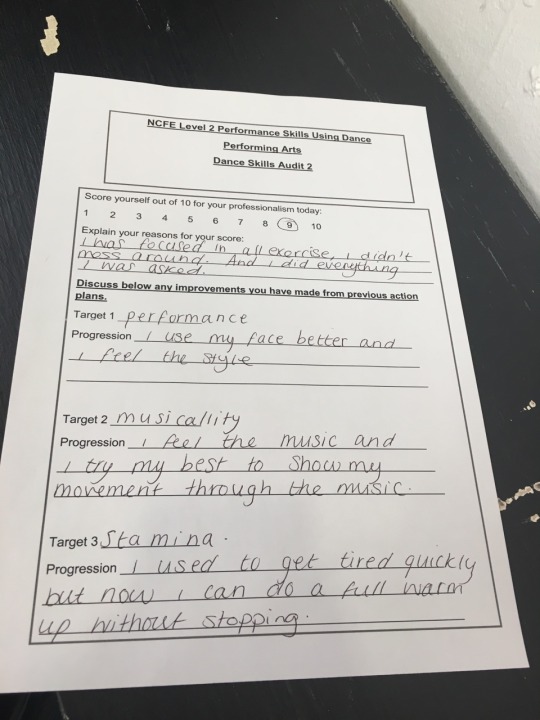 NCFE Level 2 Performance Skills Using Dance
Performing Arts
Dance Skills Audit 2
Score yourself out of 10 for your professionalism today:
1 2 3 4 5 6 7 8 9 10
Explain your reasons for your score:
I was foccused in all exercise, I didn't
mess around. And I did everything
I was asked.
Discuss below any improvements you have made from previous action
plans.
Target 1 performance
Progression I use my face better and
I feel the style
Target 2 musicallity
Progression I feel the music and
I try my best to show my
movement through the music.
Target 3 Stamina.
Progression I used to get tired quickly
but now I can do a full warm
up without stopping.